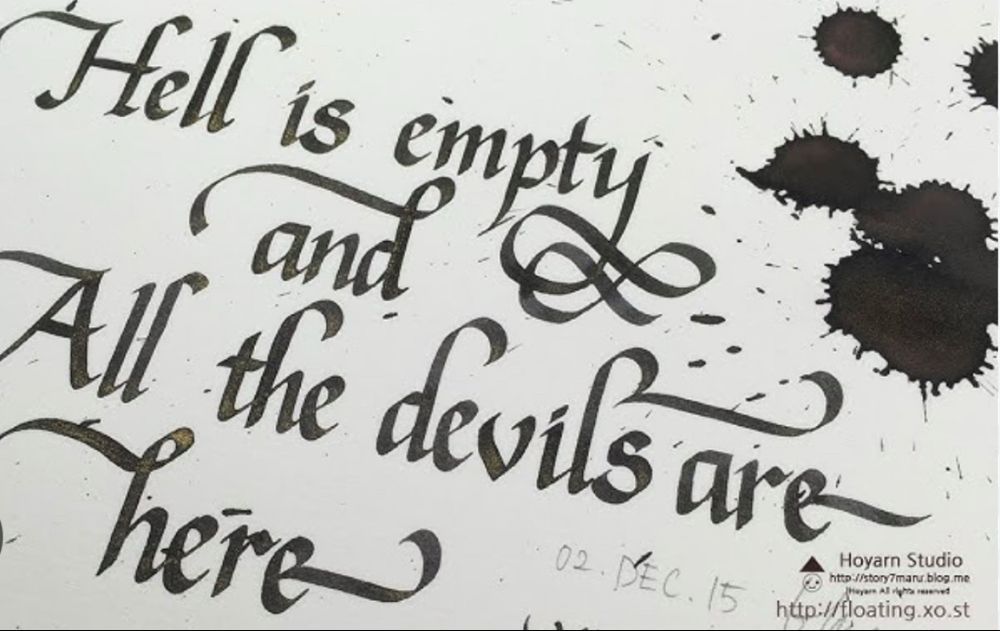 Hell is empty
and
All the devils are
here
02. DEC. 15
Hoyarn Studio
http://story7maru.blog.me
Hoyarn All rights reserved
http://floating.xo.st